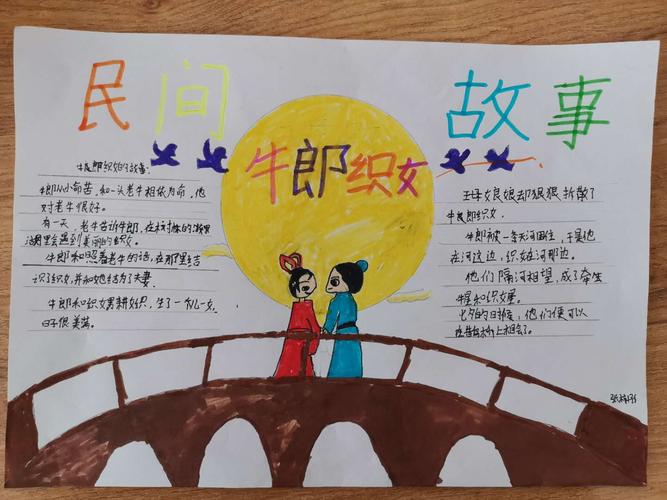 民间故事
牛郎织女
牛郎织女的故事
牛郎从小命苦,和一头老牛相依为命,他
对老牛很好。
有一天,老牛告诉牛郎,在村东的
湖里会遇到美丽的织女。
牛郎和照着老牛的话,在那里结
识了织女,并和她结为了夫妻
牛郎和织女男耕女织,生了一儿一女,
日子很美满。
王母娘娘却狠狠拆散了
牛郎织女.
牛郎被一条天河困住,于是他
在河这边,织女在河那边。
他们隔河相望,成了牵牛
星和织女星。
七夕的日时候,他们便可以
在鹊桥上相会了。